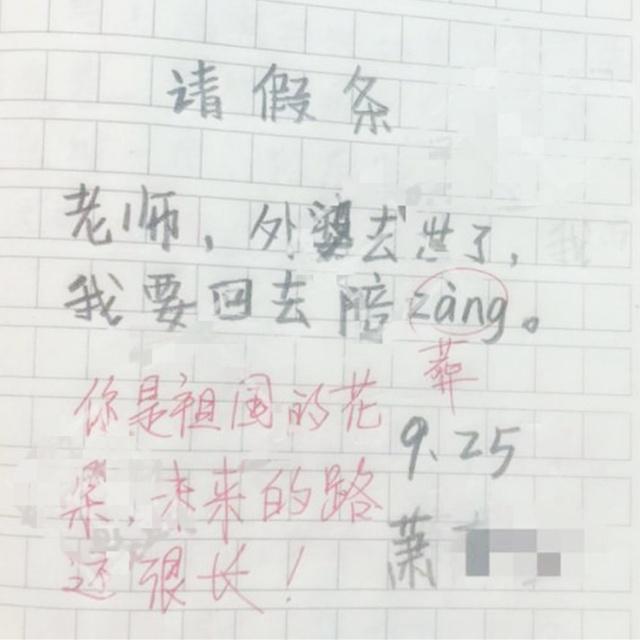 请假条
老师，外婆去世了，
我要回去陪zàng。
葬
你是祖国的花
朵，未来的路
还很长！
9.25
萧